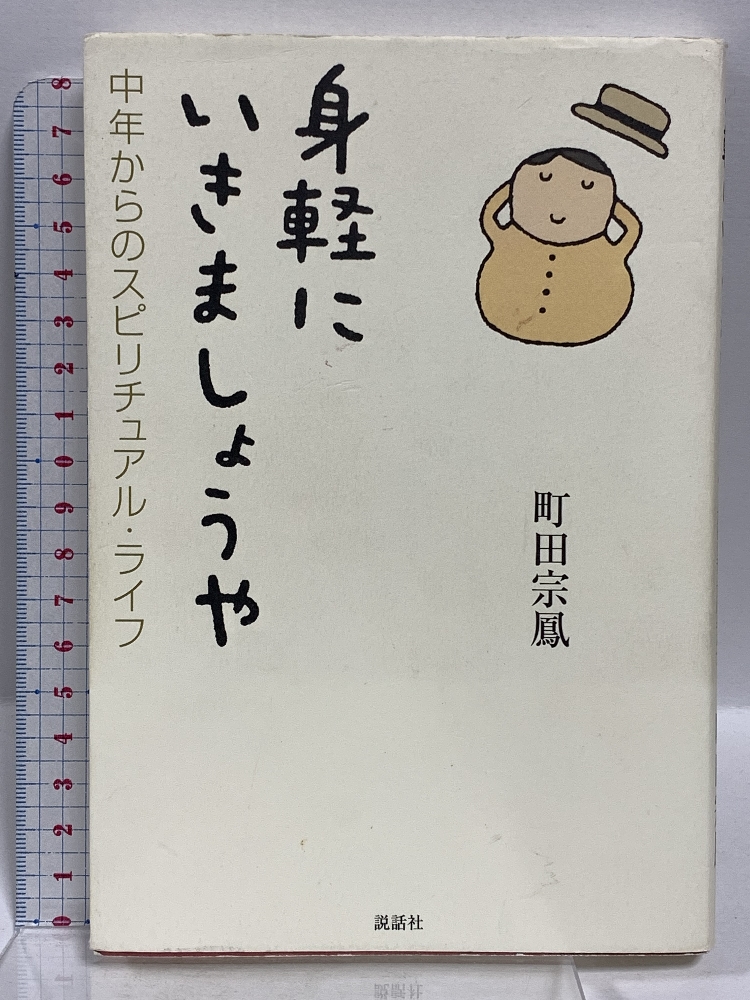 身軽に
いきましょうや
中年からのスピリチュアル・ライフ
町田宗鳳
説話社
8
7
6
5
4
3
2
1
0
9
8
7
6
5
4
3
2
1
0